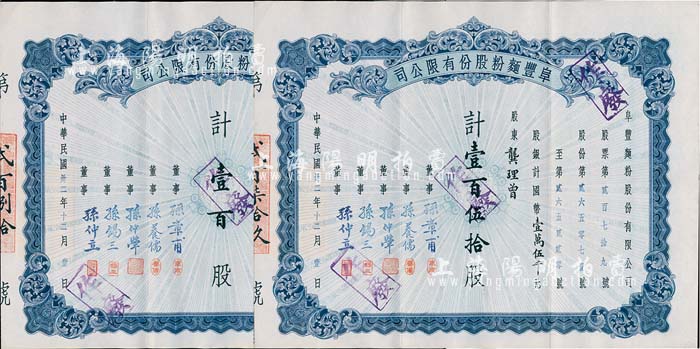 阜豐麵粉股份有限公司
阜豐麵粉股份有限公司
股票第貳百七十九號
股份第貳六五零七
至第貳六五貳
股銀計國幣壹萬伍千
股東 龔理曾
計壹百伍拾股
董事
董事
董事 孫仲犖
董事 孫錫三
董事 孫仲立
中華民國卅二年十二月壹日
作廢
第
貳百柒拾久
號
粉股份有限公司
計壹百股
董事
董事
董事 孫仲犖
董事 孫錫三
董事 孫仲立
中華民國卅二年十二月壹日
作廢
第
貳百捌拾
號
上海陽明拍賣